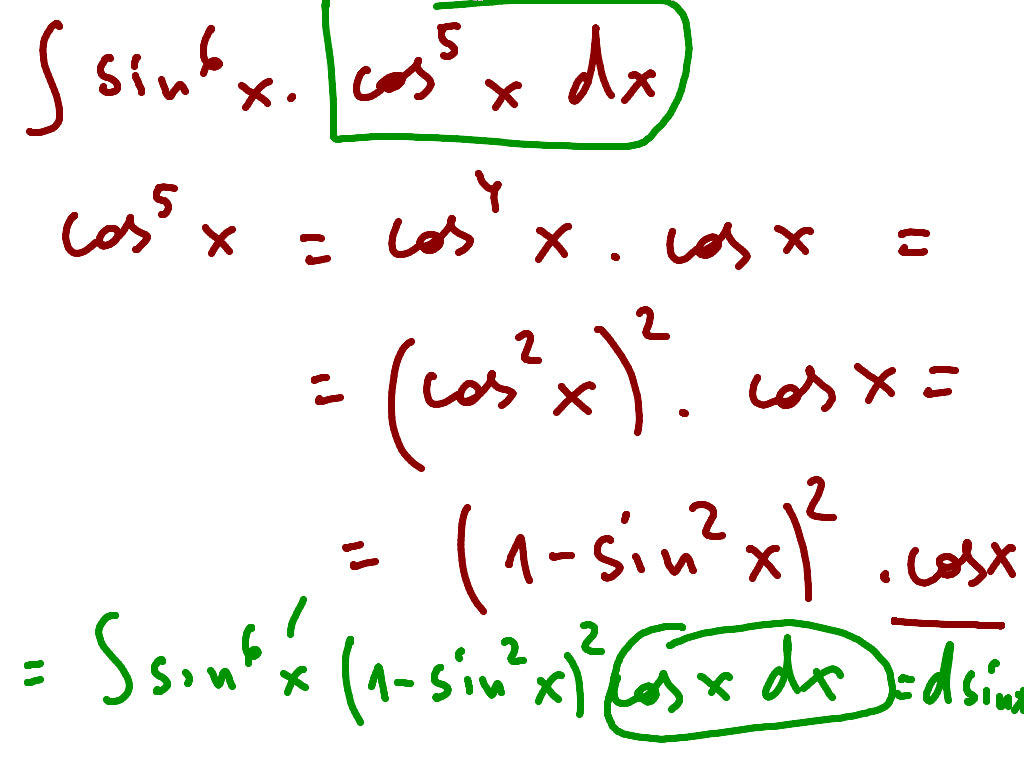 ∫ sin⁶ x · cos⁵ x dx
cos⁵ x = cos⁴ x · cos x =
= (cos² x)² · cos x =
= (1 - sin² x)² · cos x
= ∫ sin⁶ x (1 - sin² x)² cos x dx = d sin x